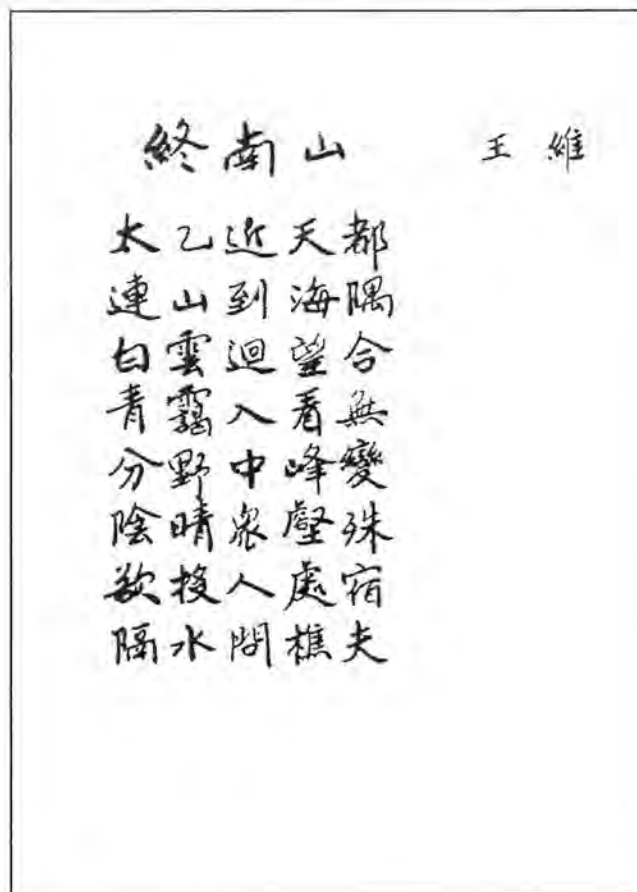 終南山 王維
太乙近天都
連山到海隅
白雲迴望合
青靄入看無
分野中峰變
陰晴眾壑殊
欲投人處宿
隔水問樵夫